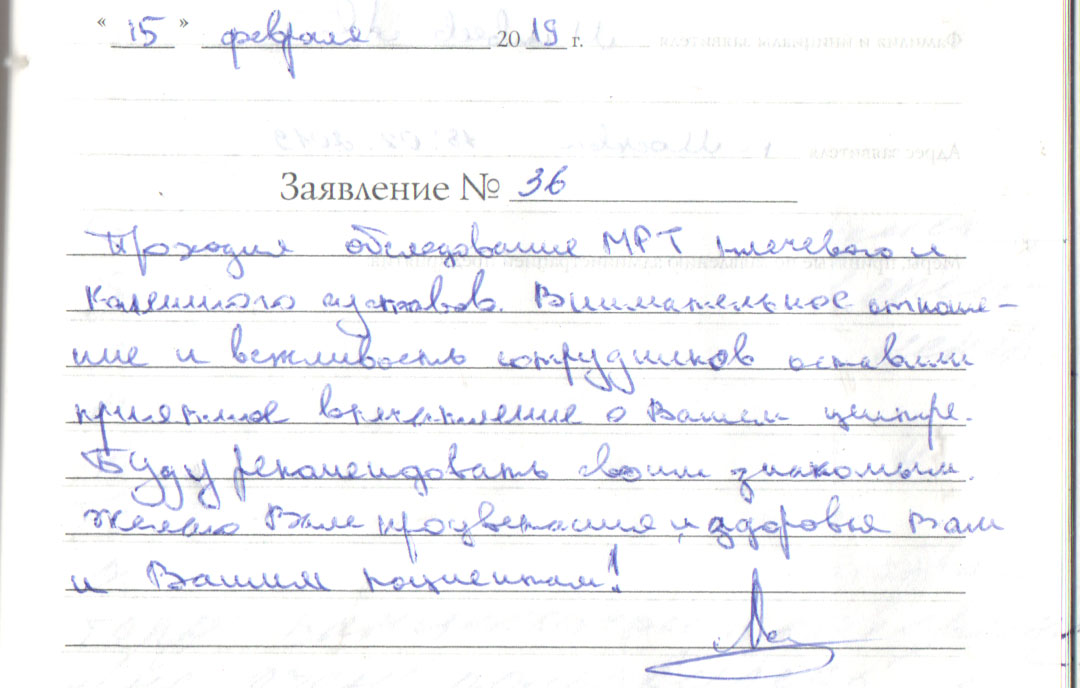 " 15 " февраля 2019 г.
Заявление № 36
Проходил обследование МРТ плечевого и
коленного суставов. Внимательное отноше-
ние и вежливость сотрудников оставили
приятное впечатление о Вашем центре.
Буду рекомендовать своим знакомым.
Желаю Вам процветания и здоровья Вам
и Вашим пациентам!